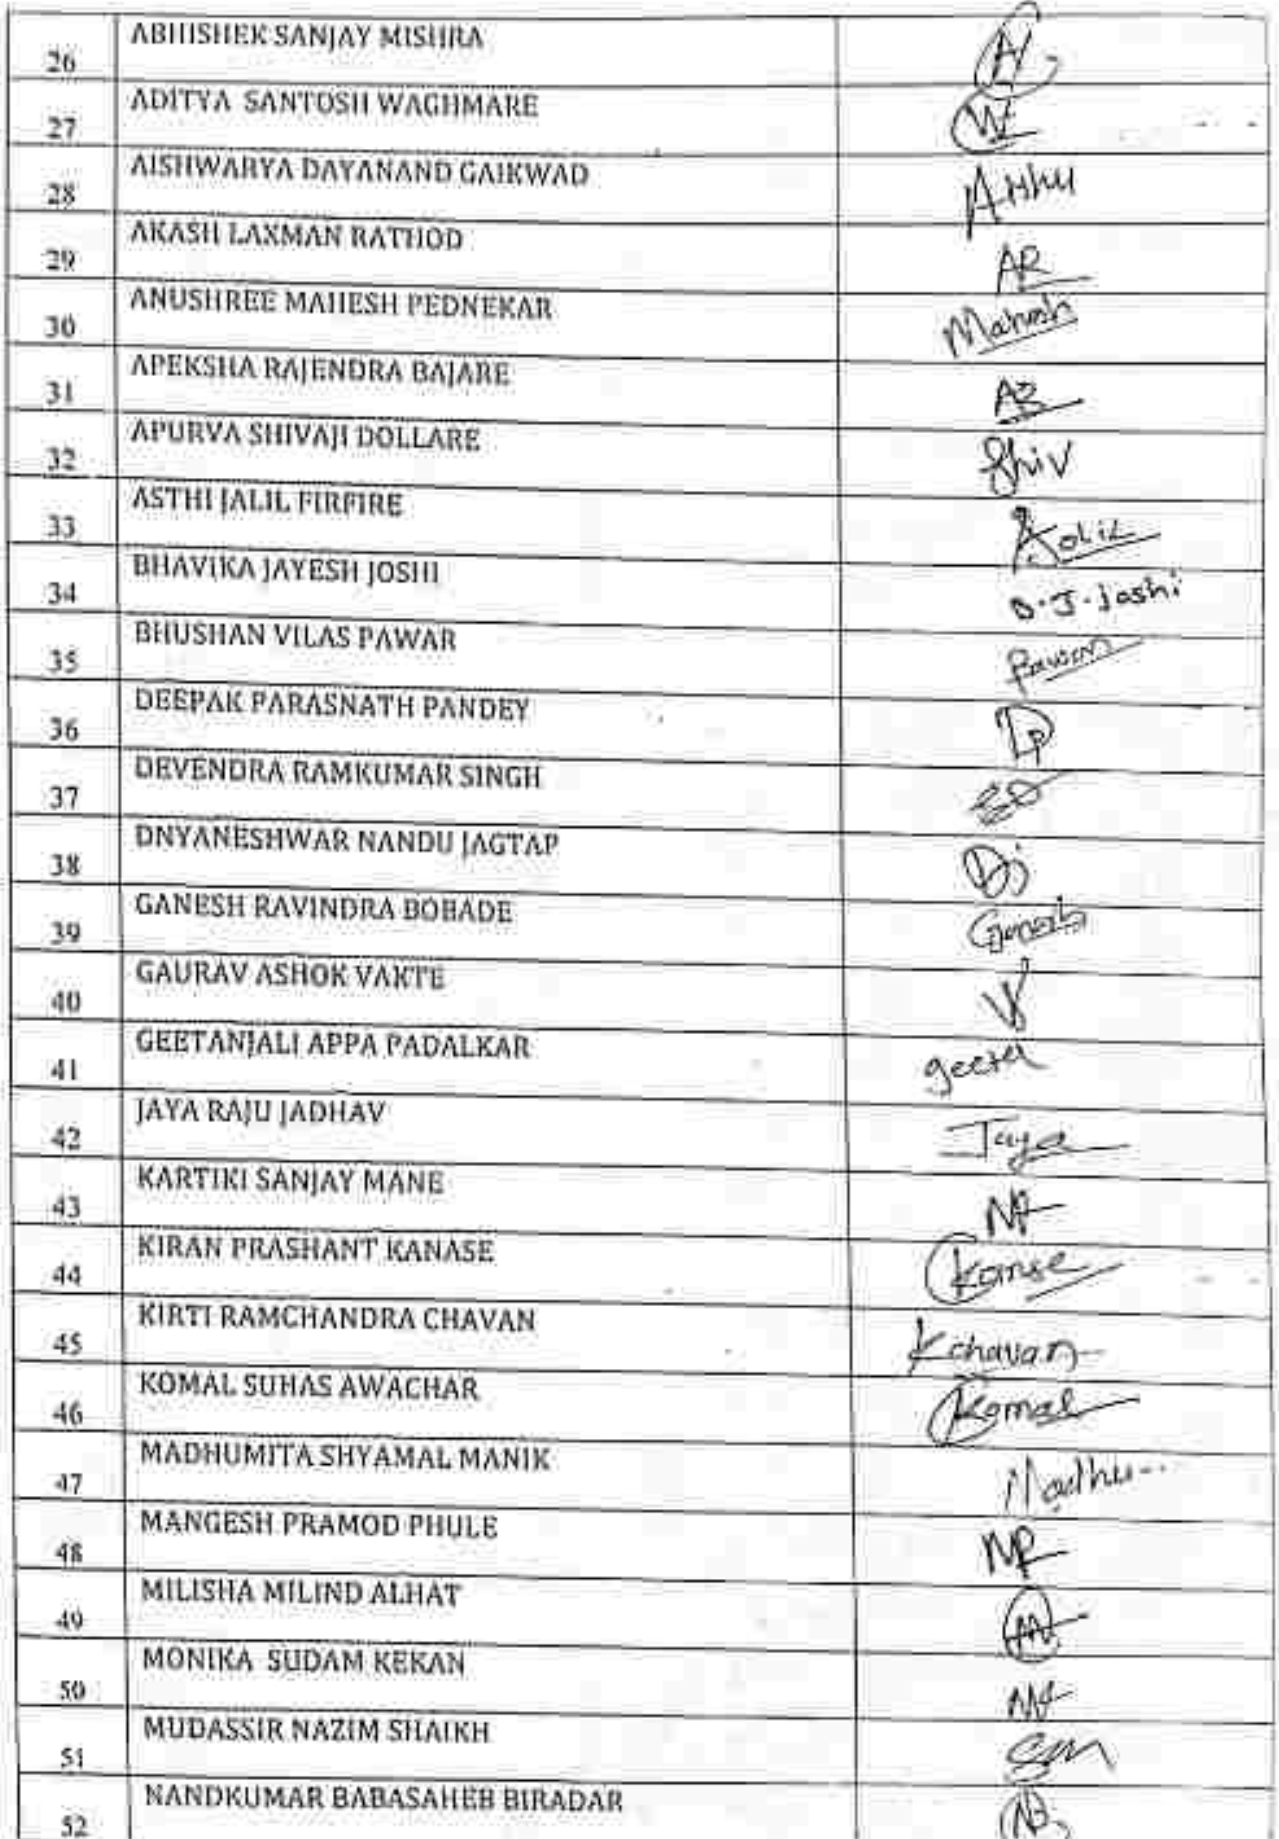 26 ABHISHEK SANJAY MISHRA
27 ADITYA SANTOSH WAGHMARE
28 AISHWARYA DAYANAND GAIKWAD
29 AKASH LAXMAN RATHOD AR
30 ANUSHREE MAHESH PEDNEKAR Mahesh
31 APEKSHA RAJENDRA BAJARE AB
32 APURVA SHIVAJI DOLLARE Shiv
33 ASTHI JALIL FIRFIRE
34 BHAVIKA JAYESH JOSHI B.J.Joshi
35 BHUSHAN VILAS PAWAR Pawar
36 DEEPAK PARASNATH PANDEY DP
37 DEVENDRA RAMKUMAR SINGH
38 DNYANESHWAR NANDU JAGTAP DJ
39 GANESH RAVINDRA BOBADE Ganesh
40 GAURAV ASHOK VAKTE
41 GEETANJALI APPA PADALKAR geeta
42 JAYA RAJU JADHAV Jaya
43 KARTIKI SANJAY MANE
44 KIRAN PRASHANT KANASE Kanse
45 KIRTI RAMCHANDRA CHAVAN Kchavan
46 KOMAL SUHAS AWACHAR Komal
47 MADHUMITA SHYAMAL MANIK Madhu
48 MANGESH PRAMOD PHULE MP
49 MILISHA MILIND ALHAT
50 MONIKA SUDAM KEKAN
51 MUDASSIR NAZIM SHAIKH
52 NANDKUMAR BABASAHEB BIRADAR NB